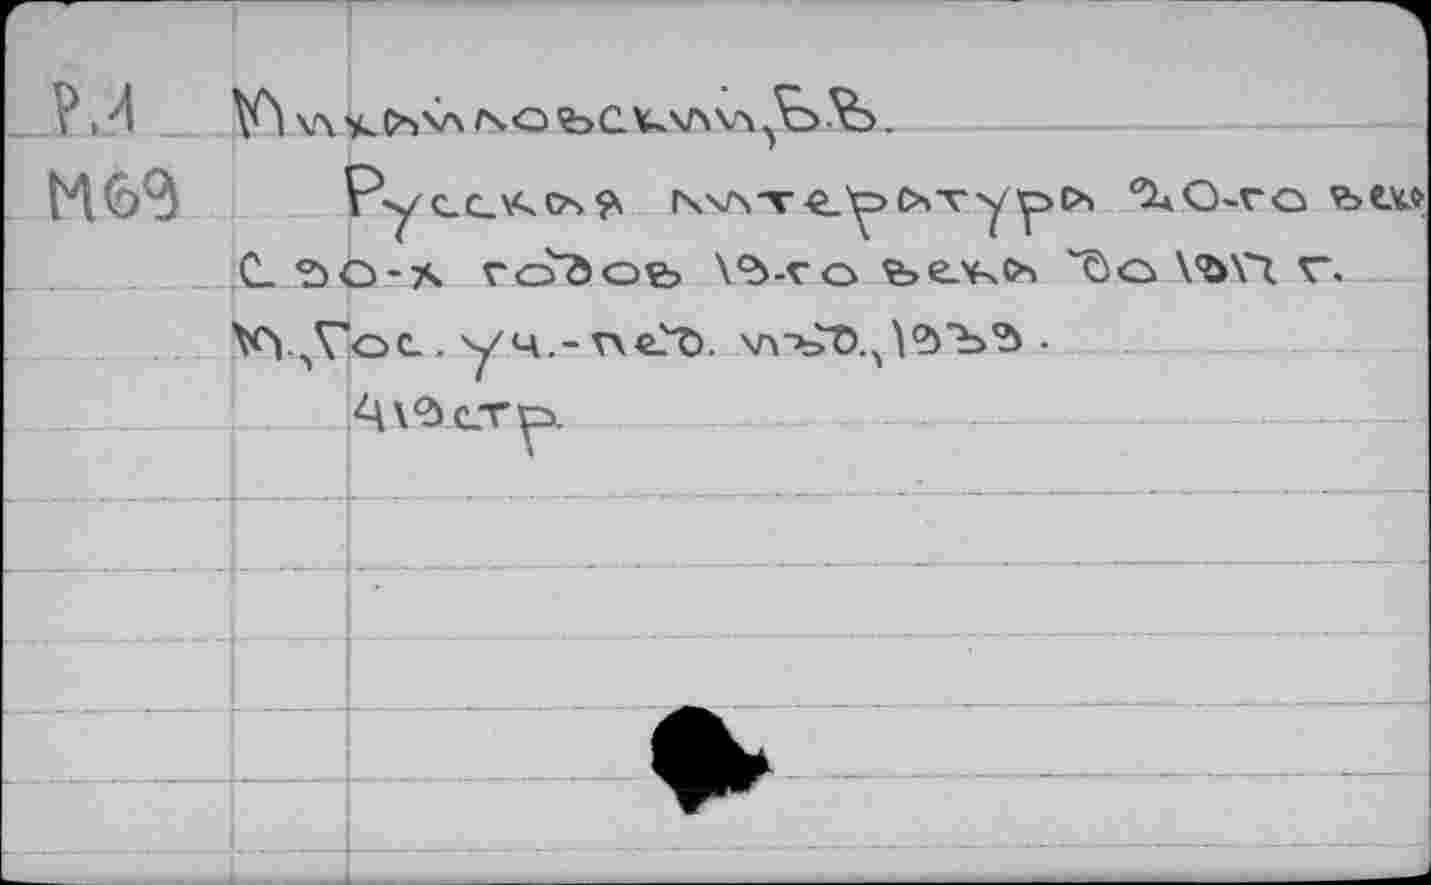 Р.4 Михайловский, Б.В.
М69 Русская литература 20-го века
С 90-х годов 19-го века до 1917 г.
М., Гос. уч.-пед. изд., 1939.
419 стр.